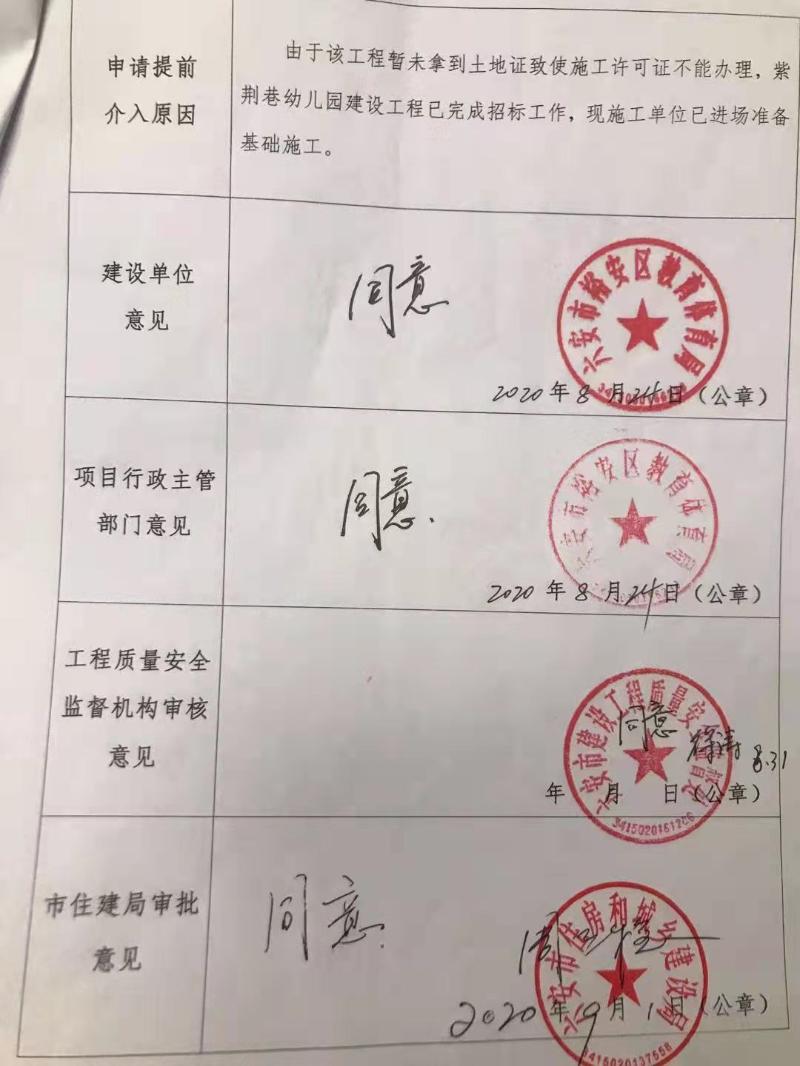 申请提前
介入原因
由于该工程暂未拿到土地证致使施工许可证不能办理，紫
荆巷幼儿园建设工程已完成招标工作，现施工单位已进场准备
基础施工。
建设单位
意见
同意
六安市裕安区教育体育局
2020年8月24日（公章）
项目行政主管
部门意见
同意.
六安市裕安区教育体育局
2020年8月24日（公章）
工程质量安全
监督机构审核
意见
六安市建设工程质量安
同意
8.31
年 月 日（公章）
3415020161266
市住建局审批
意见
同意.
六安市住房和城乡建设局
2020年9月1日（公章）
3415020137558